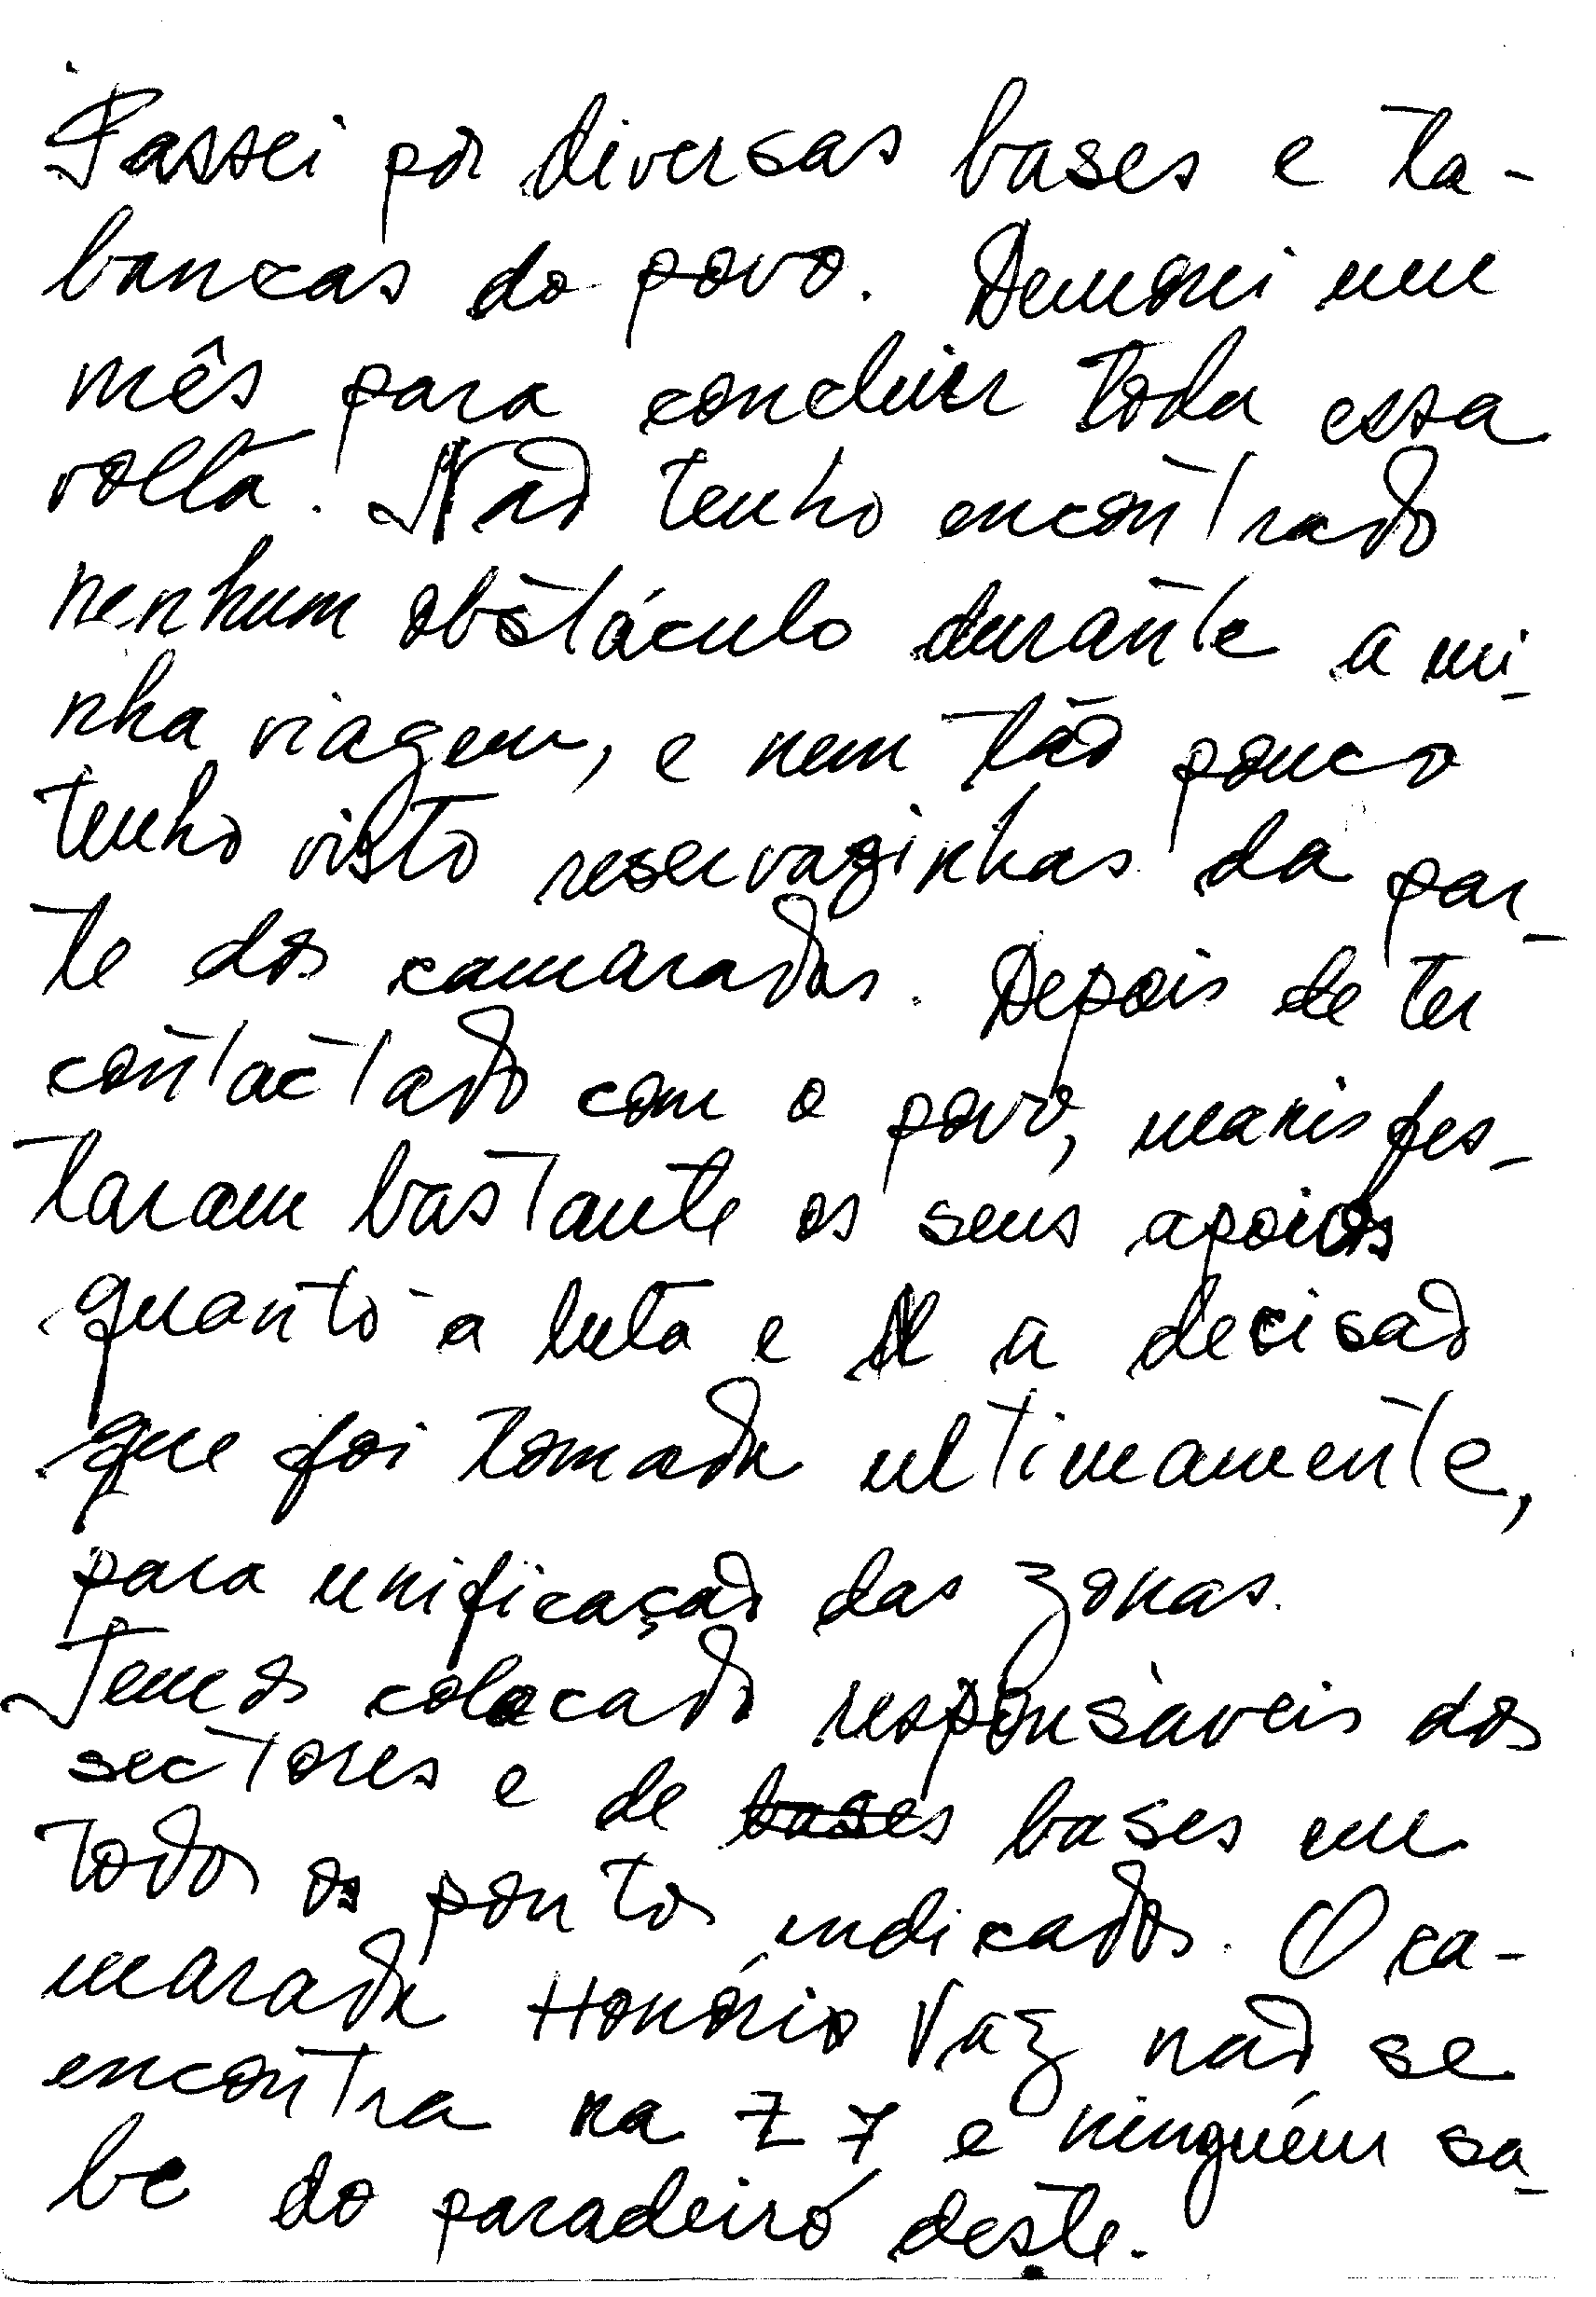 Passei por diversas bases e ta-
bancas do povo. Demorei um
mês para concluir toda essa
volta. Não tenho encontrado
nenhum obstáculo durante a mi-
nha viagem, e nem tão pouco
tenho visto reservazinhas da par-
te dos camaradas. Depois de ter
contactado com o povo, manisfes-
taram bastante os seus apoios
quanto a luta e a decisão
que foi tomada ultimamente,
para unificação das zonas.
Temos colocado responsáveis dos
sectores e de bases bases em
todos os pontos indicados. O ca-
marada Honório Vaz não se
encontra na Z 7 e ninguém sa-
be do paradeiro deste.